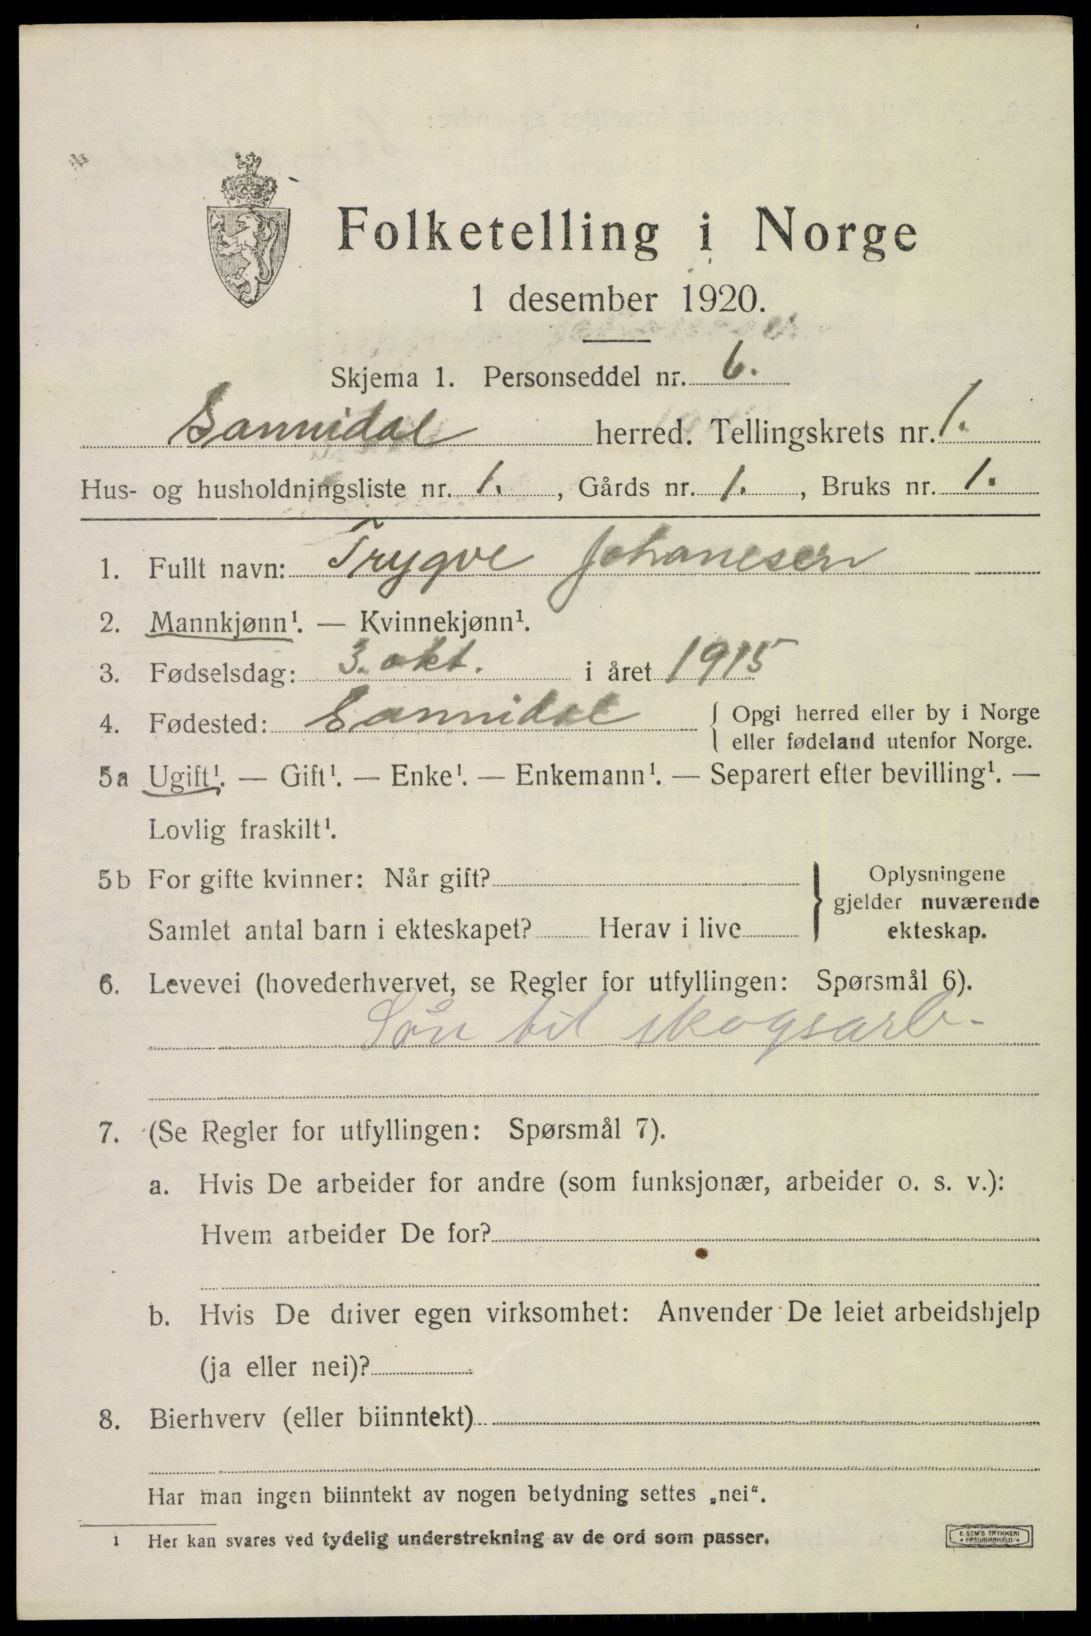 Folketelling i Norge
1 desember 1920.
Skjema 1. Personseddel nr. 6.
Sannidal herred. Tellingskrets nr. 1.
Hus- og husholdningsliste nr. 1. , Gårds nr. 1. , Bruks nr. 1.
1. Fullt navn: Trygve Johanesen
2. Mannkjønn¹. — Kvinnekjønn¹.
3. Fødselsdag: 3. okt. i året 1915
4. Fødested: Sannidal { Opgi herred eller by i Norge
eller fødeland utenfor Norge.
5a Ugift¹. — Gift¹. — Enke¹. — Enkemann¹. — Separert efter bevilling¹. —
Lovlig fraskilt¹.
5b For gifte kvinner: Når gift?
Samlet antal barn i ekteskapet? Herav i live
} Oplysningene
gjelder nuværende
ekteskap.
6. Levevei (hovederhvervet, se Regler for utfyllingen: Spørsmål 6).
Søn til skogsarb.
7. (Se Regler for utfyllingen: Spørsmål 7).
a. Hvis De arbeider for andre (som funksjonær, arbeider o. s. v.):
Hvem arbeider De for?
b. Hvis De driver egen virksomhet: Anvender De leiet arbeidshjelp
(ja eller nei)?
8. Bierhverv (eller biinntekt)
Har man ingen biinntekt av nogen betydning settes „nei“.
¹ Her kan svares ved tydelig understrekning av de ord som passer.
E. SEM'S TRYKKERI
FREDRIKSHALD